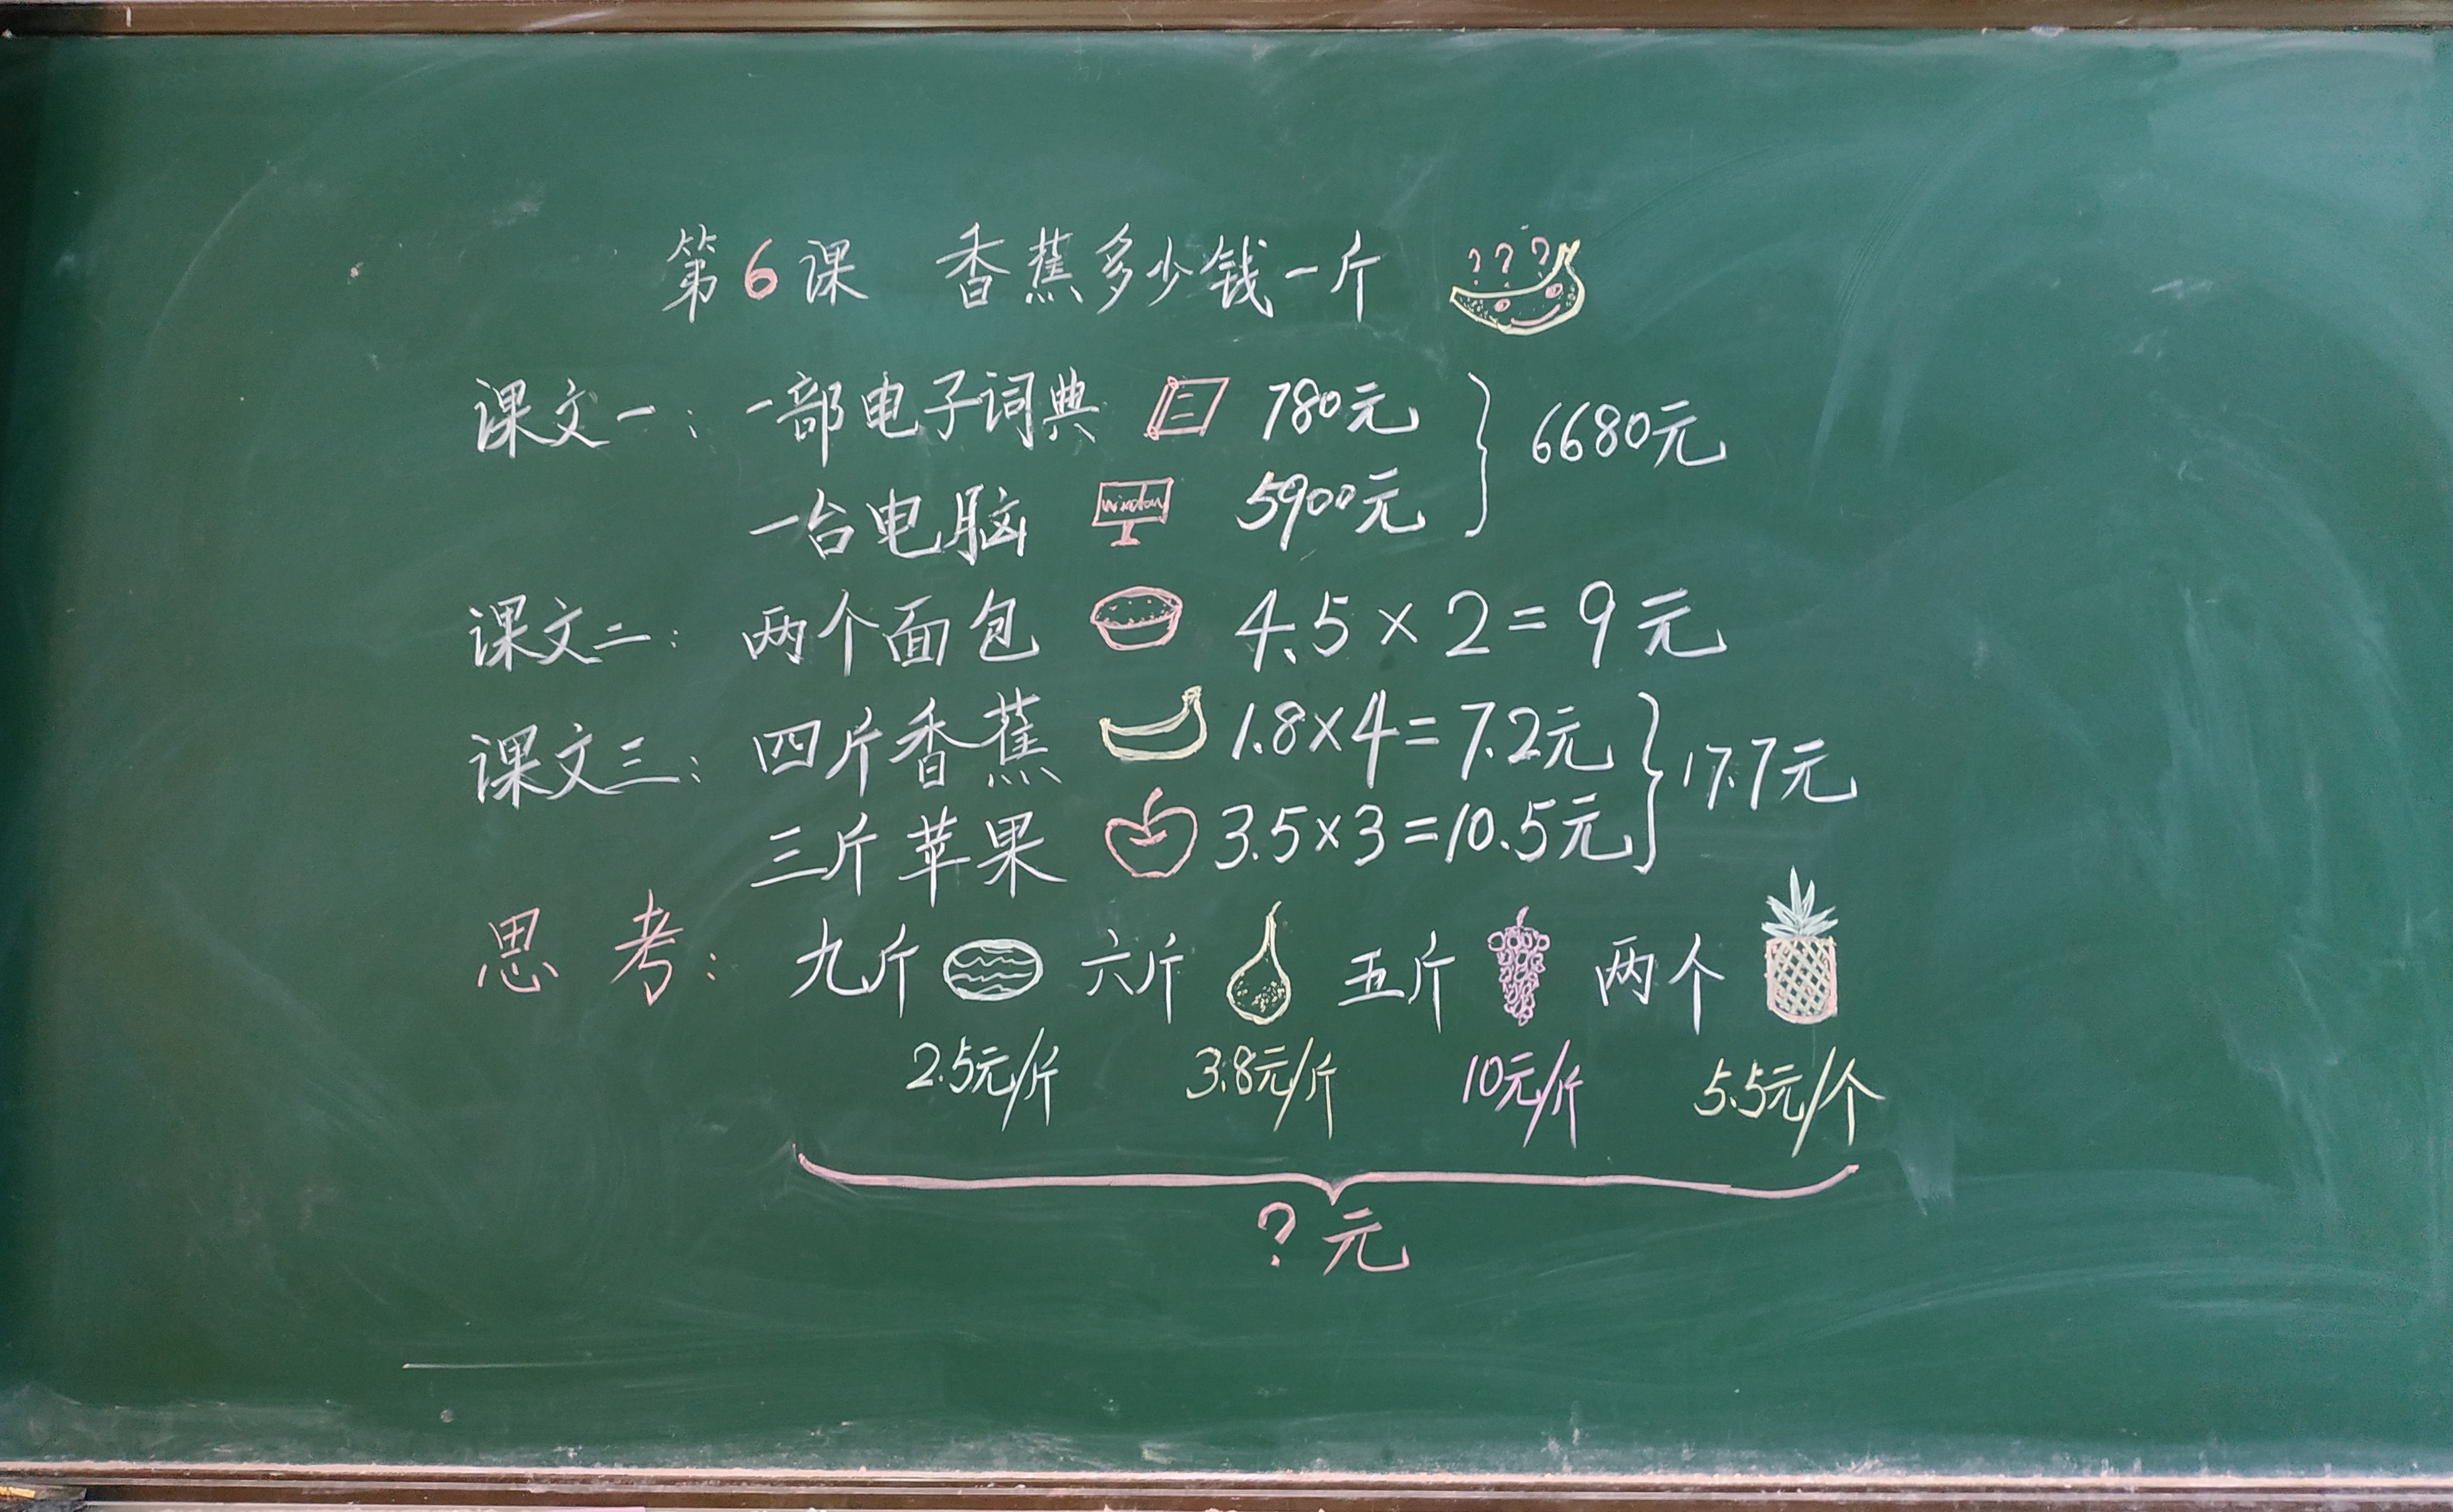 第6课 香蕉多少钱一斤 ???
课文一: 一部电子词典 780元 } 6680元
一台电脑 window 5900元
课文二: 两个面包 4.5×2=9元
课文三: 四斤香蕉 1.8×4=7.2元 } 17.7元
三斤苹果 3.5×3=10.5元
思考: 九斤 六斤 五斤 两个
2.5元/斤 3.8元/斤 10元/斤 5.5元/个
?元